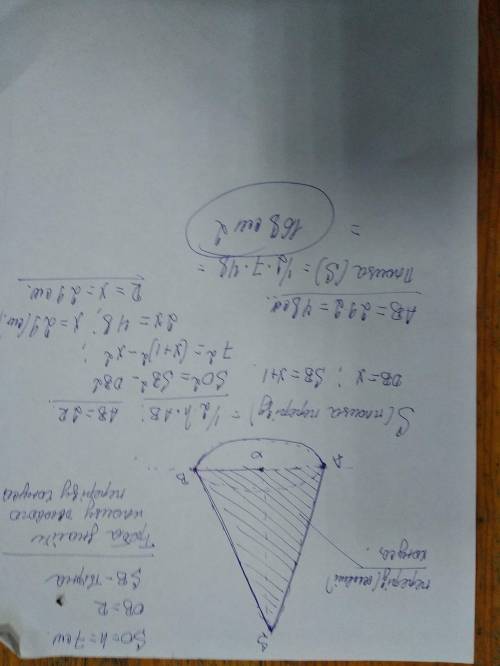 SO=h=7см
OB=R
SB-твірна
Треба знайти
площу осьового
перерізу конуса
переріз
конуса.
S
A
O
B
S(площа перерізу) = 1/2 h·AB; AB=2R
SO²=SB²-OB²
OB=x; SB=x+1
7²=(x+1)²-x²;
2x=48; x=24(см).
R=x=24см.
AB=24·2=48см.
Площа(S)=1/2·7·48=
= 168 см²